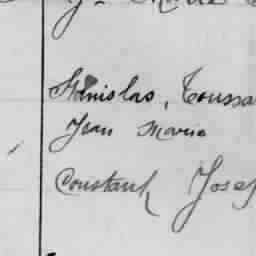 Stanislas, Toussa
Jean Marie
Constant Josef